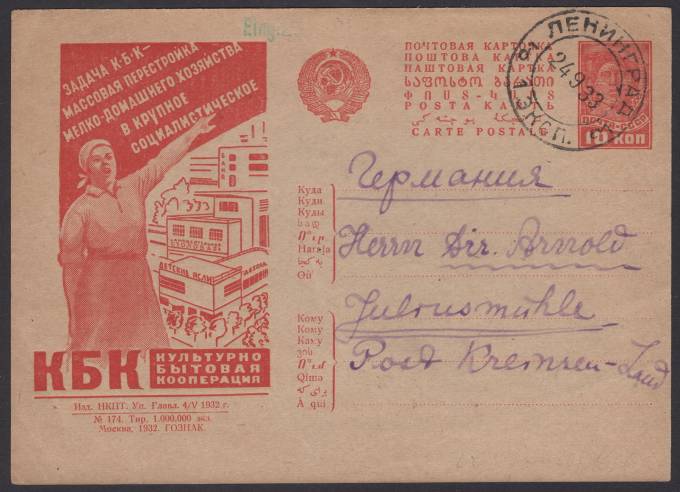 ЗАДАЧА К·Б·К—
МАССОВАЯ ПЕРЕСТРОЙКА
МЕЛКО-ДОМАШНЕГО ХОЗЯЙСТВА
В КРУПНОЕ
СОЦИАЛИСТИЧЕСКОЕ
БАНЯ
ДЕТСКИЕ ЯСЛИ
КБК
КУЛЬТУРНО
БЫТОВАЯ
КООПЕРАЦИЯ
Изд. НКПТ. Уп. Главл. 4/V 1932 г.
№ 174. Тир. 1.000.000 экз.
Москва, 1932. ГОЗНАК.
ПОЧТОВАЯ КАРТОЧКА
ПОШТОВА КАРТКА
ПАШТОВАЯ КАРТКА
POSTA
CARTE POSTALE
ЛЕНИНГРАД
24.9.33
ЭКСП.
ПОЧТА СССР
10 КОП
Куда
Куди
Куды
Haraja
Où
Германия
Herrn Dir. Arnold
Juliusmühle
Кому
Кому
Каму
Qimə
À qui
Post Kreinsen-Land